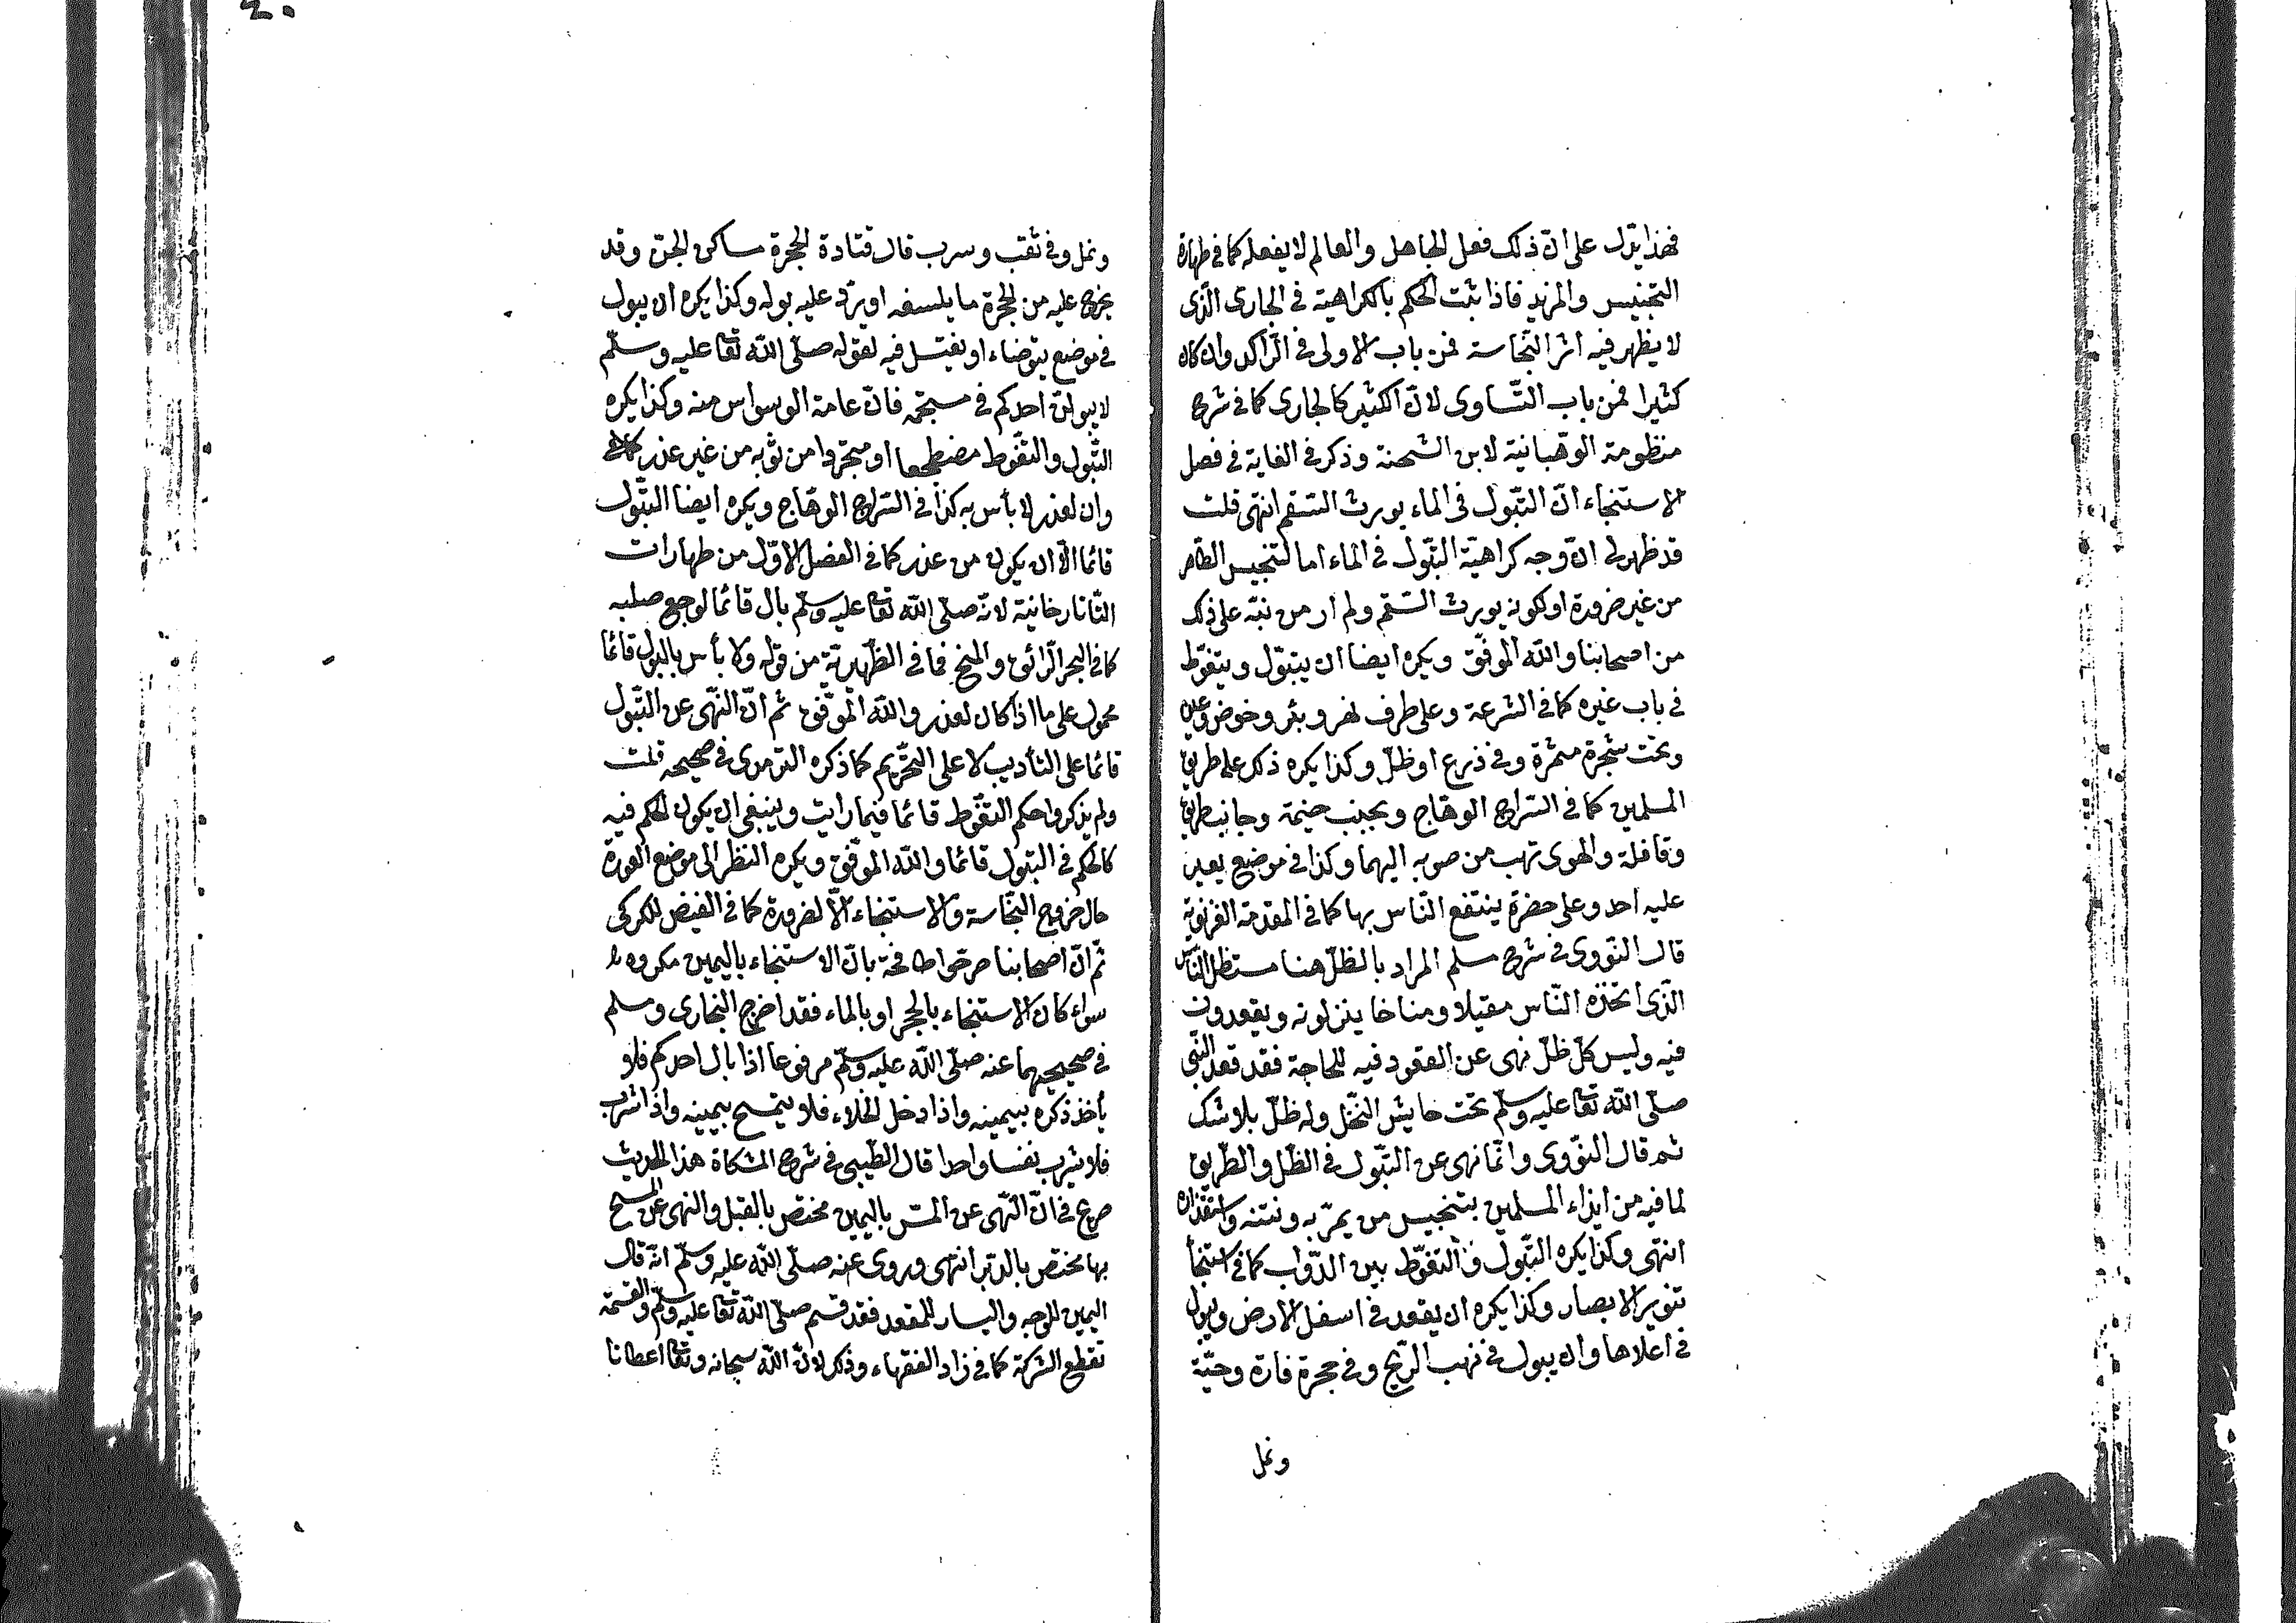 فهذا يدل على ان ذلك فعل الجاهل والعالم لا يفعله كما فى طهارة
التجنيس والمزيد فاذا ثبت الحكم بالكراهية فى الجارى الذى
لا يظهر فيه اثر النجاسة فمن باب الاولى فى الراكد وان كان
كثيرا فمن باب التساوى لان الكثير كالجارى كما فى شرح
منظومة الوهبانية لابن الشحنة وذكر فى الغاية فى فصل
الاستنجاء ان التبول فى الماء يورث السقم انتهى قلت
قد ظهر لى ان وجه كراهية التبول فى الماء اما لتنجيس الطاهر
من غير ضرورة او لكونه يورث السقم ولم ار من نبه على ذلك
من اصحابنا والله الموفق ويكره ايضا ان يتبول ويتغوط
فى باب غيره كما فى الشرعة وعلى طرف نهر وبئر وحوض وعين
وتحت شجرة مثمرة وفى ذرع او ظل وكذا يكره ذلك على طريق
المسلمين كما فى السراج الوهاج وبجنب خيمة وجانب طريق
وقافلة والهوى تهب من صوبه اليهما وكذا فى موضع يعبر
عليه احد وعلى خضرة ينتفع الناس بها كما فى المقدمة الغزنوية
قال النووى فى شرح مسلم المراد بالظل هنا مستظل الناس
الذى اتخذه الناس مقيلا ومناخا ينزلونه ويقعدون
فيه وليس كل ظل نهى عن القعود فيه للحاجة فقد قعد النبى
صلى الله تعا عليه وسلم تحت حايش النخل وله ظل بلا شك
ثم قال النووى وانما نهى عن التبول فى الظل والطريق
لما فيه من ايذاء المسلمين بتنجيس من يمر به ونتنه واستقذاره
انتهى وكذا يكره التبول والتغوط بين الدواب كما فى استنجا
تنوير الابصار وكذا يكره ان يقعد فى اسفل الارض ويبول
فى اعلاها وان يبول فى مهب الريح وفى جحرة فارة وحية
ونمل
ونمل وفى ثقب وسرب قال قتادة الجحرة مساكن الجن وقد
يخرج عليه من الجحرة ما يلسفه او يرد عليه بوله وكذا يكره ان يبول
فى موضع يتوضاء او يغتسل فيه لقوله صلى الله تعا عليه وسلم
لا يبولن احدكم فى مستحمه فان عامة الوسواس منه وكذا يكره
التبول والتغوط مضطجعا او متجردا من ثوبه من غير عذر
وان لعذر لا بأس به كذا فى السراج الوهاج ويكره ايضا التبول
قائما الا ان يكون من عذر كما فى الفصل الاول من طهارات
التاتارخانية لانه صلى الله تعا عليه وسلم بال قائما لوجع صلبه
كما فى البحر الرائق والمنح فما فى الظهيرية من قوله ولا بأس بالبول قائما
محمول على ما اذا كان لعذر والله الموفق ثم ان النهى عن التبول
قائما على التأديب لا على التحريم كما ذكره الترمذى فى صحيحه قلت
ولم يذكروا حكم التغوط قائما فيما رايت وينبغى ان يكون الحكم فيه
كالحكم فى التبول قائما والله الموفق ويكره النظر الى موضع العورة
حال خروج النجاسة والاستنجاء الا لضرورة كما فى الفيض للكركى
ثم ان اصحابنا صرحوا بان الاستنجاء باليمين مكروه
سواء كان الاستنجاء بالحجر او بالماء فقد اخرج البخارى ومسلم
فى صحيحيهما عنه صلى الله عليه وسلم مرفوعا اذا بال احدكم فلا
يأخذ ذكره بيمينه واذا دخل الخلاء فلا يتمسح بيمينه واذا شرب
فلا يشرب نفسا واحدا قال الطيبى فى شرح المشكاة هذا الحديث
صريح فى ان النهى عن المس باليمين مختص بالقبل والنهى عن المسح
بها مختص بالدبر انتهى وروى عنه صلى الله عليه وسلم انه قال
اليمين للوجه واليسار للمقعد فقد قسم صلى الله تعا عليه وسلم والقسمة
تقطع الشركة كما فى زاد الفقهاء وذلك لان الله سبحانه وتعا اعطانا